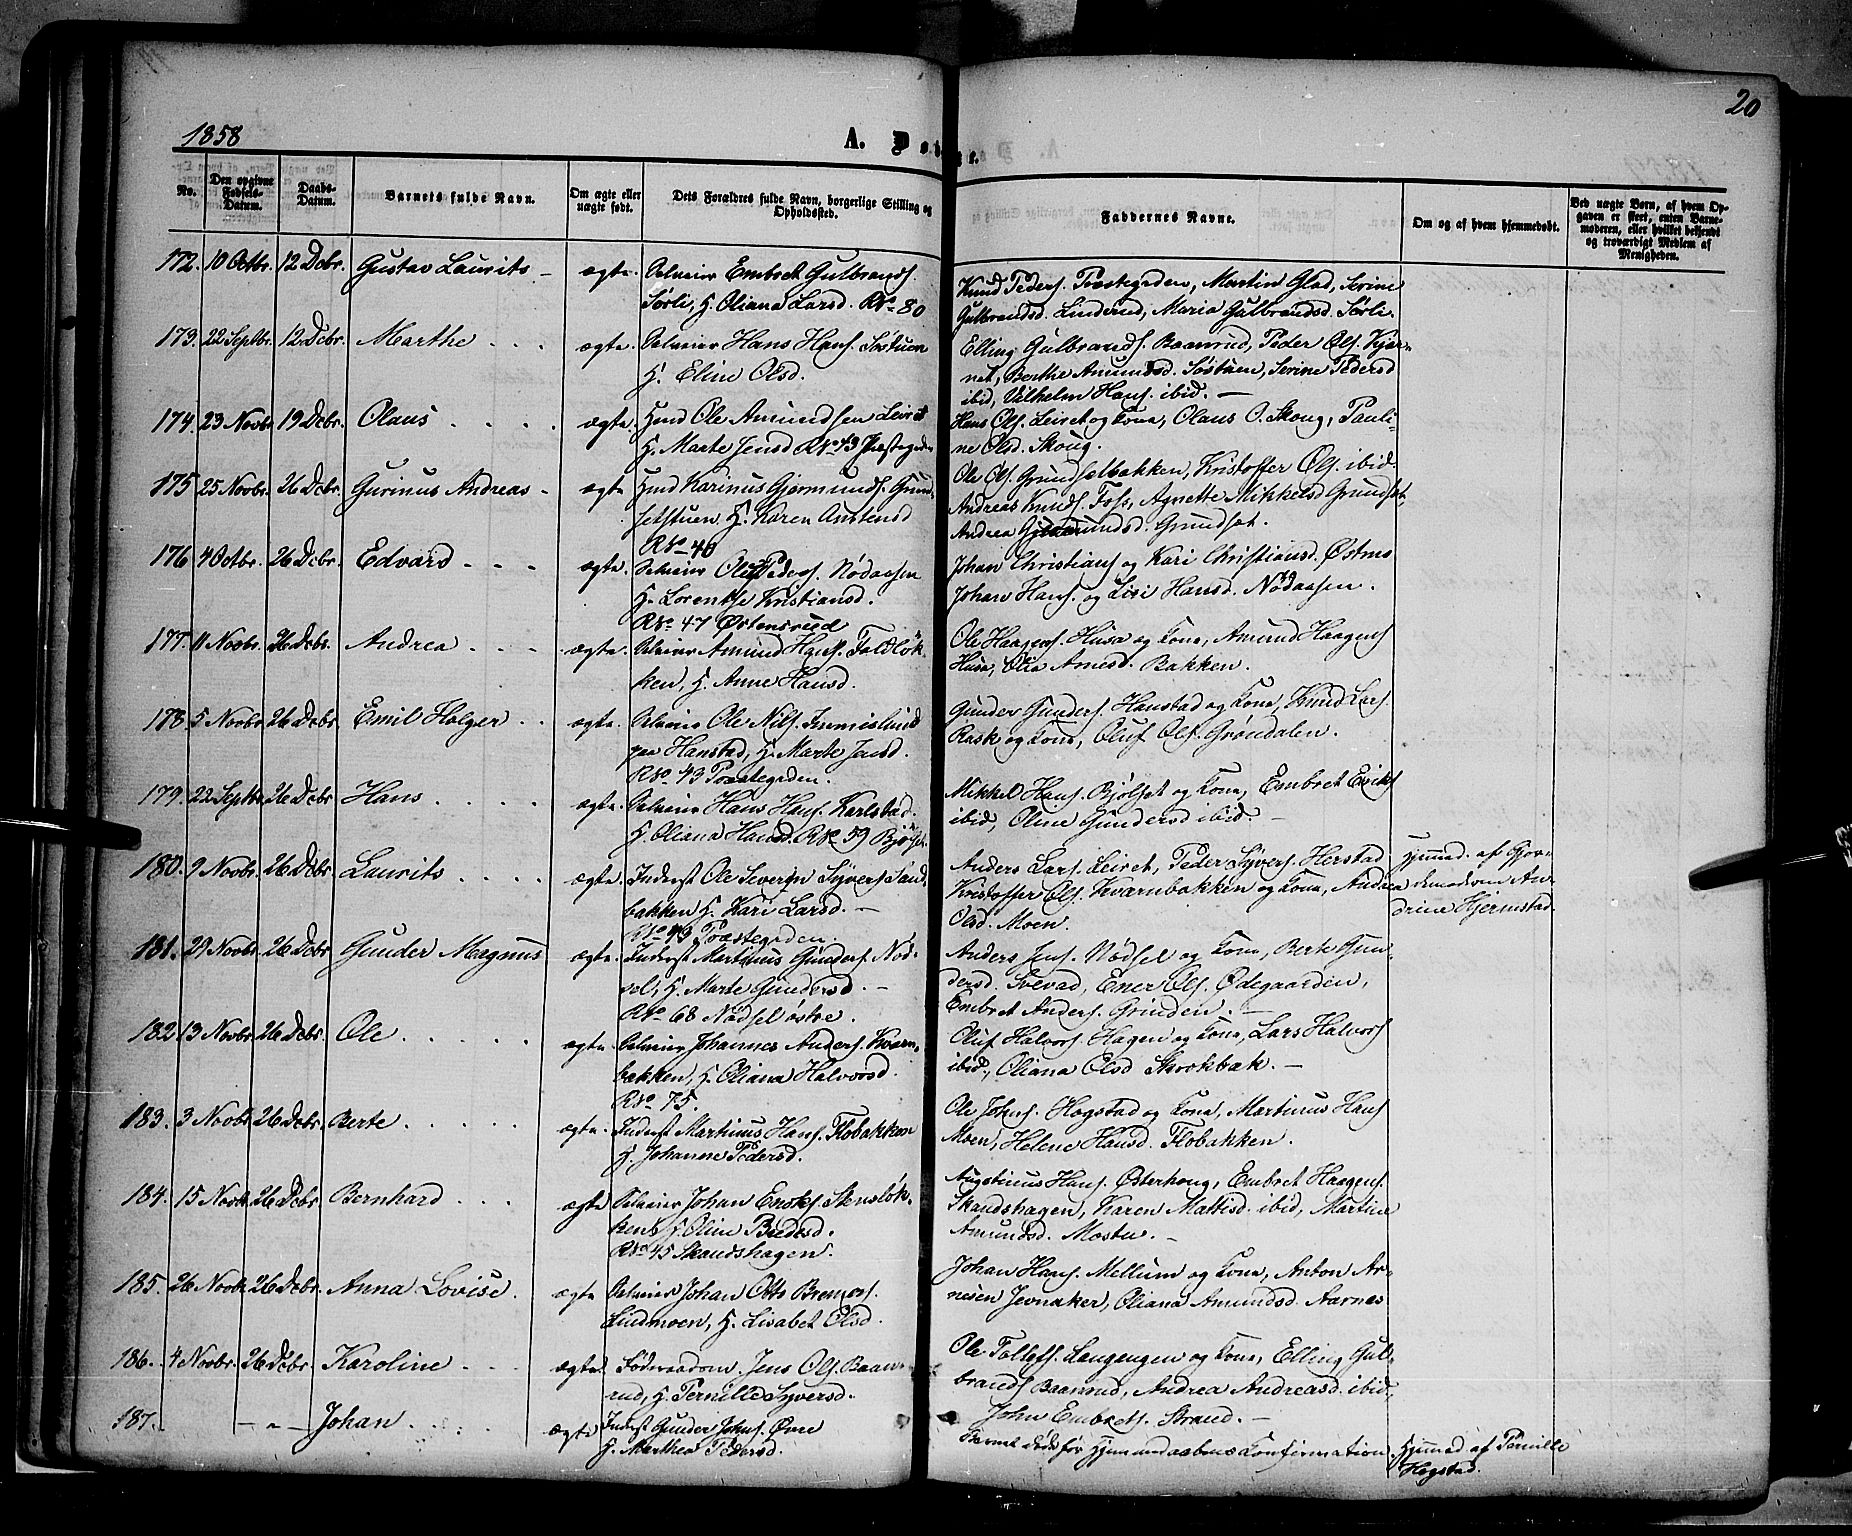 20
1858
A. Døbte.
No.
Den opgivne Fødsels-Datum.
Daabs-Datum.
Barnets fulde Navn.
Om ægte eller uægte født.
Dets Forældres fulde Navn, borgerlige Stilling og Opholdssted.
Faddernes Navne.
Om og af hvem hjemmedøbt.
Ved uægte Børn, af hvem Opgaven er skeet, enten Barnemoderen, eller hvilket bekjendt og troværdigt Medlem af Menigheden.
172. 10 Octbr. 12 Dcbr. Gustav Laurits - ægte. Selveier Embret Gulbrands.
Sørli, H. Oliana Larsd. RNo 80
Knud Peders. Præstegrden, Martin Glad, Serine
Gulbrandsd. Linderud, Maria Gulbrandsd. Sørli.
173. 22 Septbr. 12 Dcbr. Marthe . . . ægte. Selveier Hans Hans. Søstuen
H. Elin Olsd.
Elling Gulbrands. Baanrud, Peder Ols. Kjær-
net, Berthe Amundsd. Søstuen, Serine Pedersd
ibid, Vilhelm Hans. ibid. -
174. 23 Novbr 19 Dcbr. Olaus . . . . ægte. Hmd Ole Amundsen Leiret
H. Marte Jensd RNo 43 Præstegrden
Hans Ols. Leiret og Kona, Olaus O. Skoug, Pauli-
ne Olsd. Skoug.
175 25 Novbr. 26 Dcbr. Gurinus Andreas - ægte Hmd Karinus Gjermunds. Grund-
setstuen H. Karen Amstensd
RNo 40
Ole Ols. Grundsetbakken, Kristoffer Ols. ibid
Andreas Knuds. Foss, Agnette Mikkelsd Grundset,
Andrea Gjermundsd. Grundset.
176 4 Octbr. 26 Dcbr. Edvard . . . ægte. Selveier Ole Peders. Nødaasen
H. Lorentse Kristiansd.
RNo 47 Østensrud
Johan Christians og Kari Christiansd. Østmo
Johan Hans. og Lisi Hansd. Nødaasen.
177. 11 Novbr. 26 Dcbr. Andrea . . . ægte. Selveier Amund Hans. Faldløk-
ken, H. Anne Hansd.
Ole Haagens. Husa og Kona, Amund Haagens
Husa, Olia Arnesd. Bakken.
178. 5 Novbr. 26 Dcbr. Emil Holger . . ægte. Selveier Ole Nils.
paa Hanstad, H. Marte Jensd.
RNo 43 Præstegrden.
Gunder Gunders. Hanstad og Kona, Knud Lars.
Rask og Kona, Oluf Ols. Grøndalen.
179. 22 Septbr. 26 Dcbr Hans . . . . ægte. Selveier Hans Hans. Karlstad.
H. Oliana Hansd. RNo 59 Bjølset.
Mikkel Hans. Bjølset og Kona, Embret Eriks
ibid, Oline Gundersd ibid. -
180. 9 Novbr. 26 Dcbr. Laurits . . . . ægte. Inderst Ole Severin Syvers. Sand-
bakken H. Kari Larsd. -
RNo 43 Præstegrden.
Anders Lars. Leiret, Peder Syvers. Herstad
Kristoffer Ols. Kværnbakken og Kona, Andrea
Olsd. Moen.
Hjemmd. af Gjor-
demoderen An-
drine Hjermstad.
181. 29 Novbr. 26 Dcbr Gunder Magnus ægte. Inderst Martinus Gunders. Nød-
sel, H. Marte Gundersd. -
RNo 68 Nødsel østre.
Anders Jens. Nødsel og Kona, Berte Gun-
dersd. Svevad, Ener Ols. Ødegaarden,
Embret Anders. Grinden. -
182 13 Novbr. 26 Dcbr. Ole . . . . . ægte. Selveier Johannes Anders. Kværn-
bakken, H. Oliana Halvorsd.
RNo 75.
Oluf Halvors. Hagen og Kona, Lars Halvors
ibid, Oliana Olsd Skrokbak. -
183. 3 Novbr. 26 Dcbr. Berte . . . . . ægte. Inderst Martinus Hans. Flobakken
H. Johanne Pedersd.
Ole Johns. Hogstad og Kona, Martinus Hans
Moen, Helene Hansd. Flobakken.
184. 15 Novbr. 26 Dcbr. Bernhard . . . ægte Selveier Johan Embrets. Stensløk-
ken H. Olin Bredesd.
RNo 45 Skandshagen.
Augstinus Hans. Østerhoug, Embret Haagens.
Skandshagen, Karen Mattisd. ibid, Martine
Amundsd. Mostu. -
185. 26 Novbr. 26 Dcbr. Anna Lovise. ægte Selveier Johan Otto
Lindmoen, H. Lisabet Olsd.
Johan Hans. Mellum og Kona, Anton Ar-
nesen Jevnaker, Oliana Amundsd. Aarnes
186. 4 Novbr. 26 Dcbr. Karoline . . . ægte. Føderaadsm. Jens Ols. Baan-
rud, H. Pernille Syversd.
Ole Tollefs. Langengen og Kona, Elling Gul-
brands Baanrud, Andrea Andreasd. ibid,
John Embrets. Strand. -
187. - „ - Johan . . . . ægte. Inderst Gunder Johns. Øvre
H. Marthea Pedersd.
Barnet døde før Hjemmedaabens Konfirmation
Hjemmd. af Pernille
Hogstad.